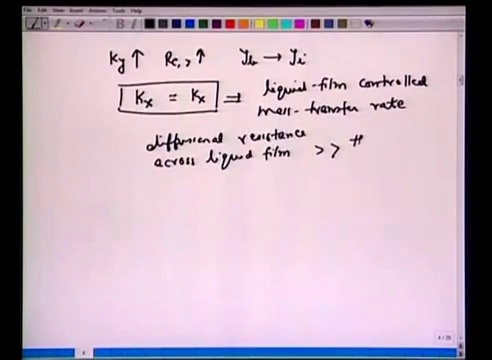 File Edit View Insert Actions Tools Help
Ky ↑ Re,> ↑ yb → yi
Kx = Kx ⇒ liquid-film controlled
mass-transfer rate
diffusional resistance
across liquid film >>